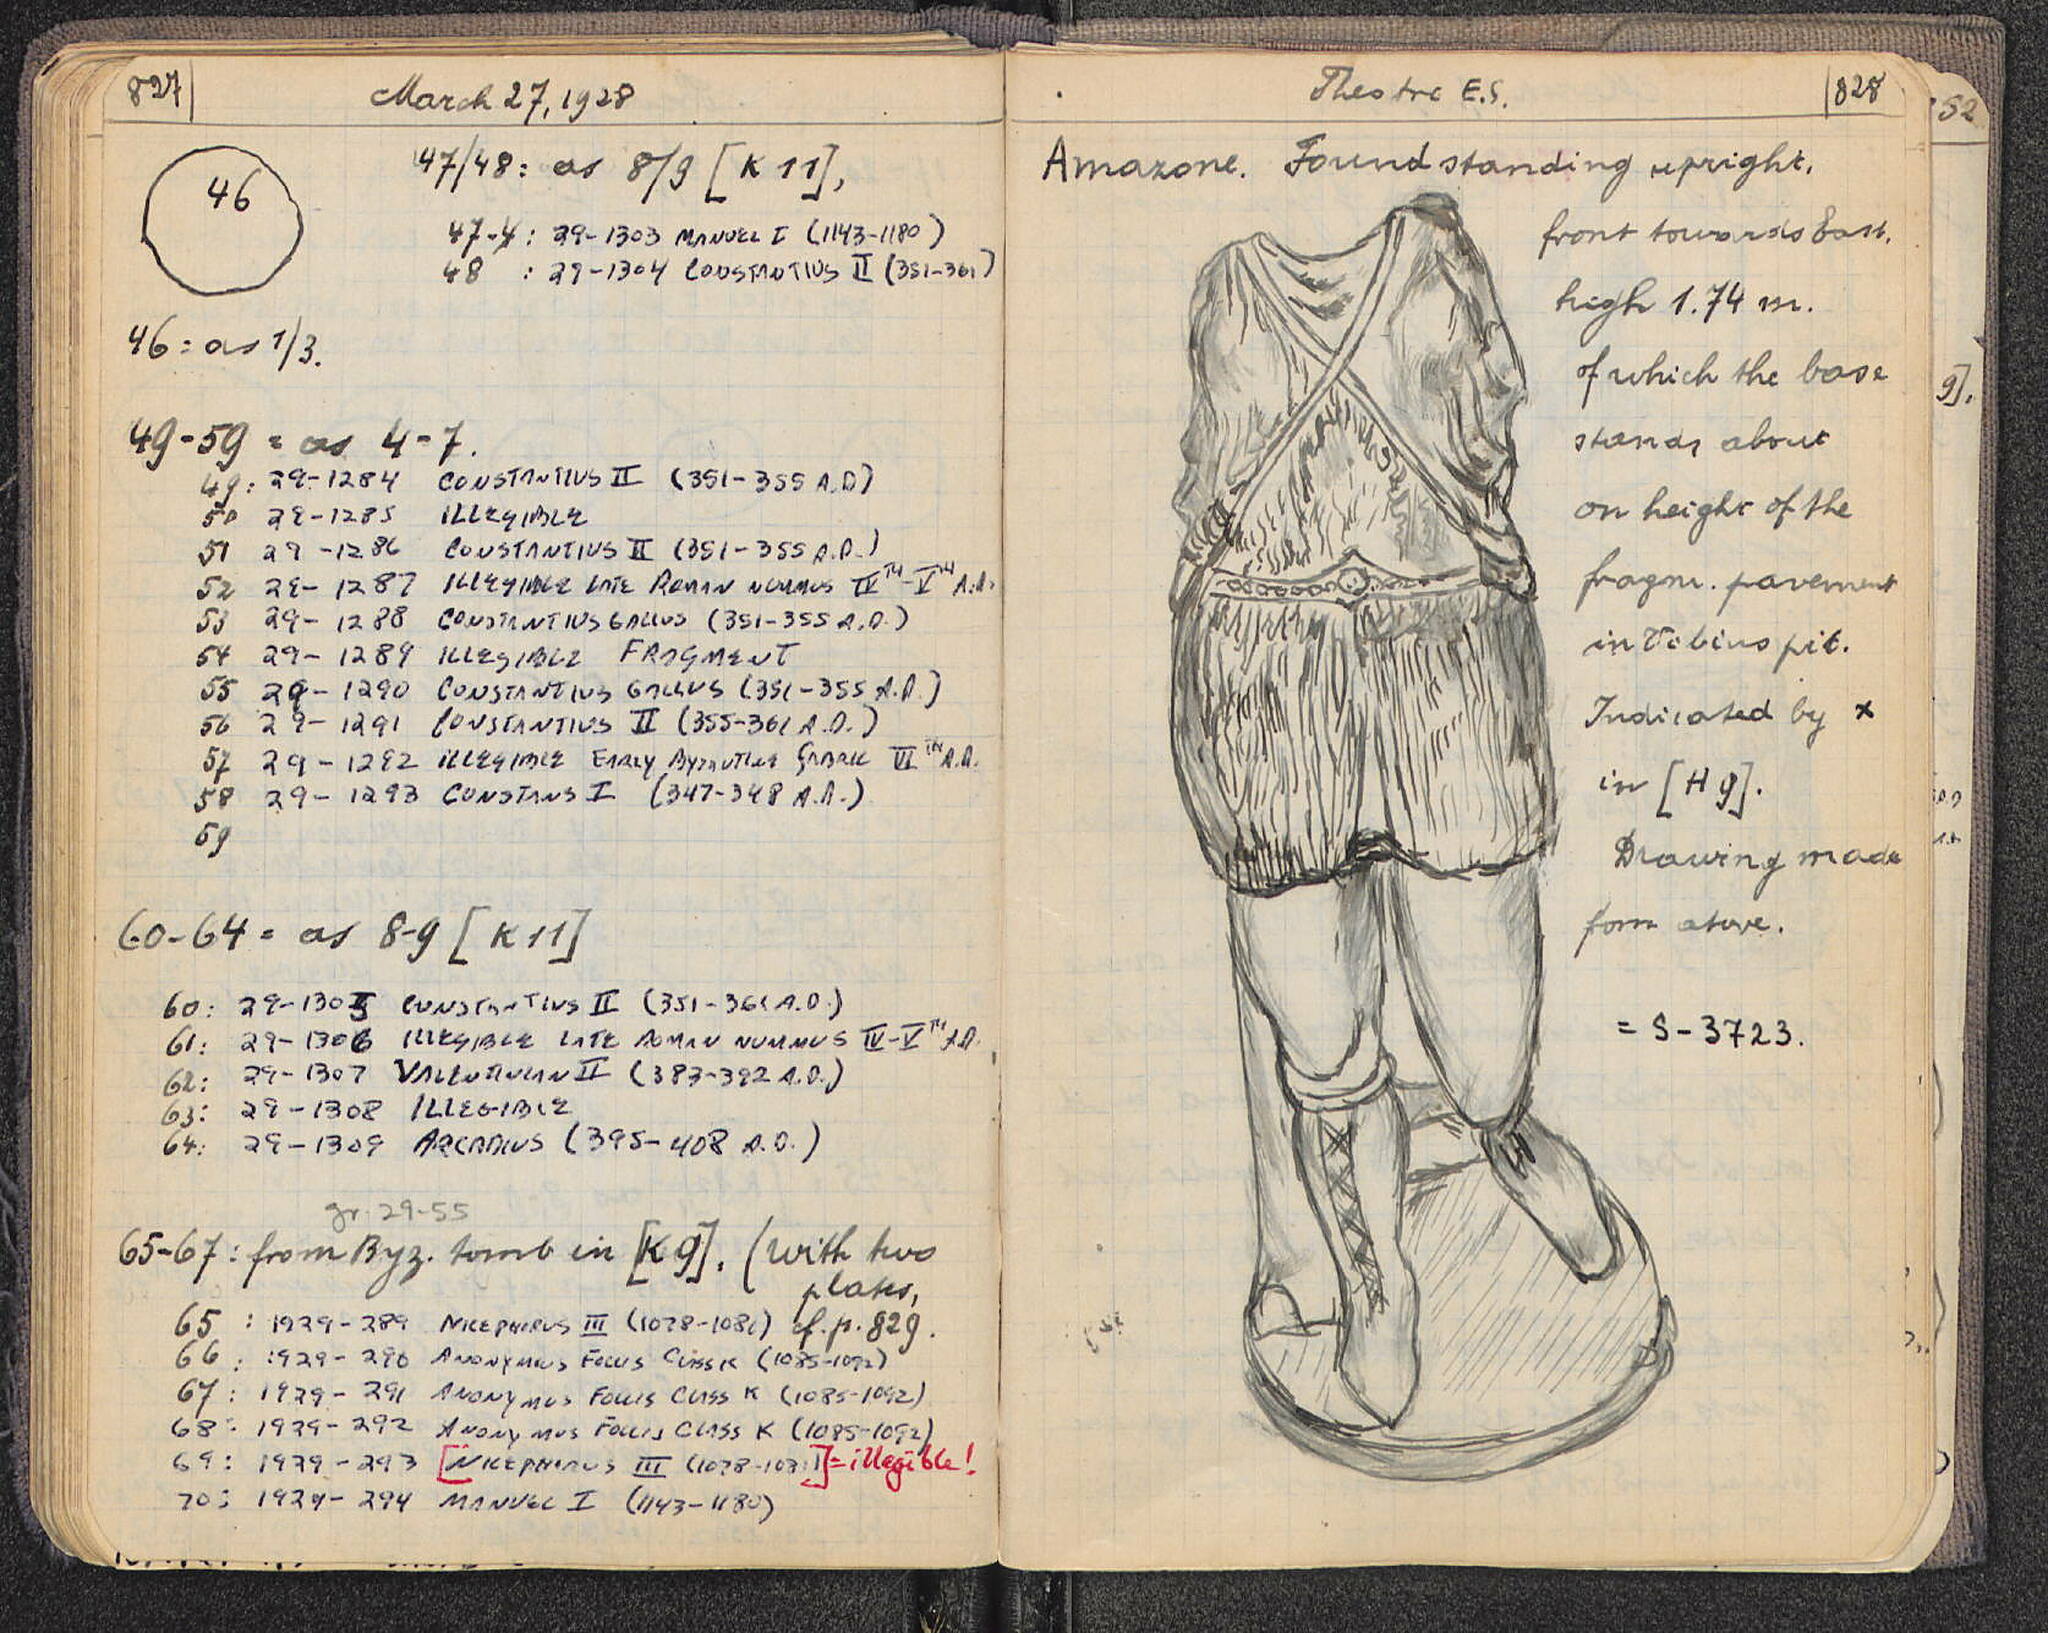 827
March 27, 1928
46
47/48: as 8/9 [K 11],
47-4: 29-1303 MANUEL I (1143-1180)
48 : 29-1304 CONSTANTIUS II (351-361)
46: as 1/3.
49-59 = as 4-7.
49: 29-1284 CONSTANTIUS II (351-355 A.D)
50 29-1285 ILLEGIBLE
51 29-1286 CONSTANTIUS II (351-355 A.D.)
52 29-1287 ILLEGIBLE LATE ROMAN NUMMUS IVTH-VTH A.D.
53 29-1288 CONSTANTIUS GALLUS (351-355 A.D.)
54 29-1289 ILLEGIBLE FRAGMENT
55 29-1290 CONSTANTIUS GALLUS (351-355 A.D.)
56 29-1291 CONSTANTIUS II (355-361 A.D.)
57 29-1292 ILLEGIBLE EARLY BYZANTINE FABRIC VITH A.D.
58 29-1293 CONSTANS I (347-348 A.D.)
59
60-64 = as 8-9 [K 11]
60: 29-1305 CONSTANTIUS II (351-361 A.D.)
61: 29-1306 ILLEGIBLE LATE ROMAN NUMMUS IV-VTH A.D.
62: 29-1307 VALENTINIAN II (383-392 A.D.)
63: 29-1308 ILLEGIBLE
64: 29-1309 ARCADIUS (395-408 A.D.)
gr. 29-55
65-67: from Byz. tomb in [K 9]. (with two
plates,
65 : 1929-289 NICEPHORUS III (1078-1081) cf. p. 829.
66 : 1929-290 ANONYMOUS FOLLIS CLASS K (1085-1092)
67 : 1929-291 ANONYMOUS FOLLIS CLASS K (1085-1092)
68: 1929-292 ANONYMOUS FOLLIS CLASS K (1085-1092)
69: 1929-293 [NICEPHORUS III (1078-1081)] = illegible!
70: 1929-294 MANUEL I (1143-1180)
Theatre E.S.
828
Amazone. Found standing upright.
front towards East.
high 1.74 m.
of which the base
stands about
on height of the
fragm. pavement
in Tiberius pit.
Indicated by x
in [H 9].
Drawing made
form above.
= S-3723.
52
9].